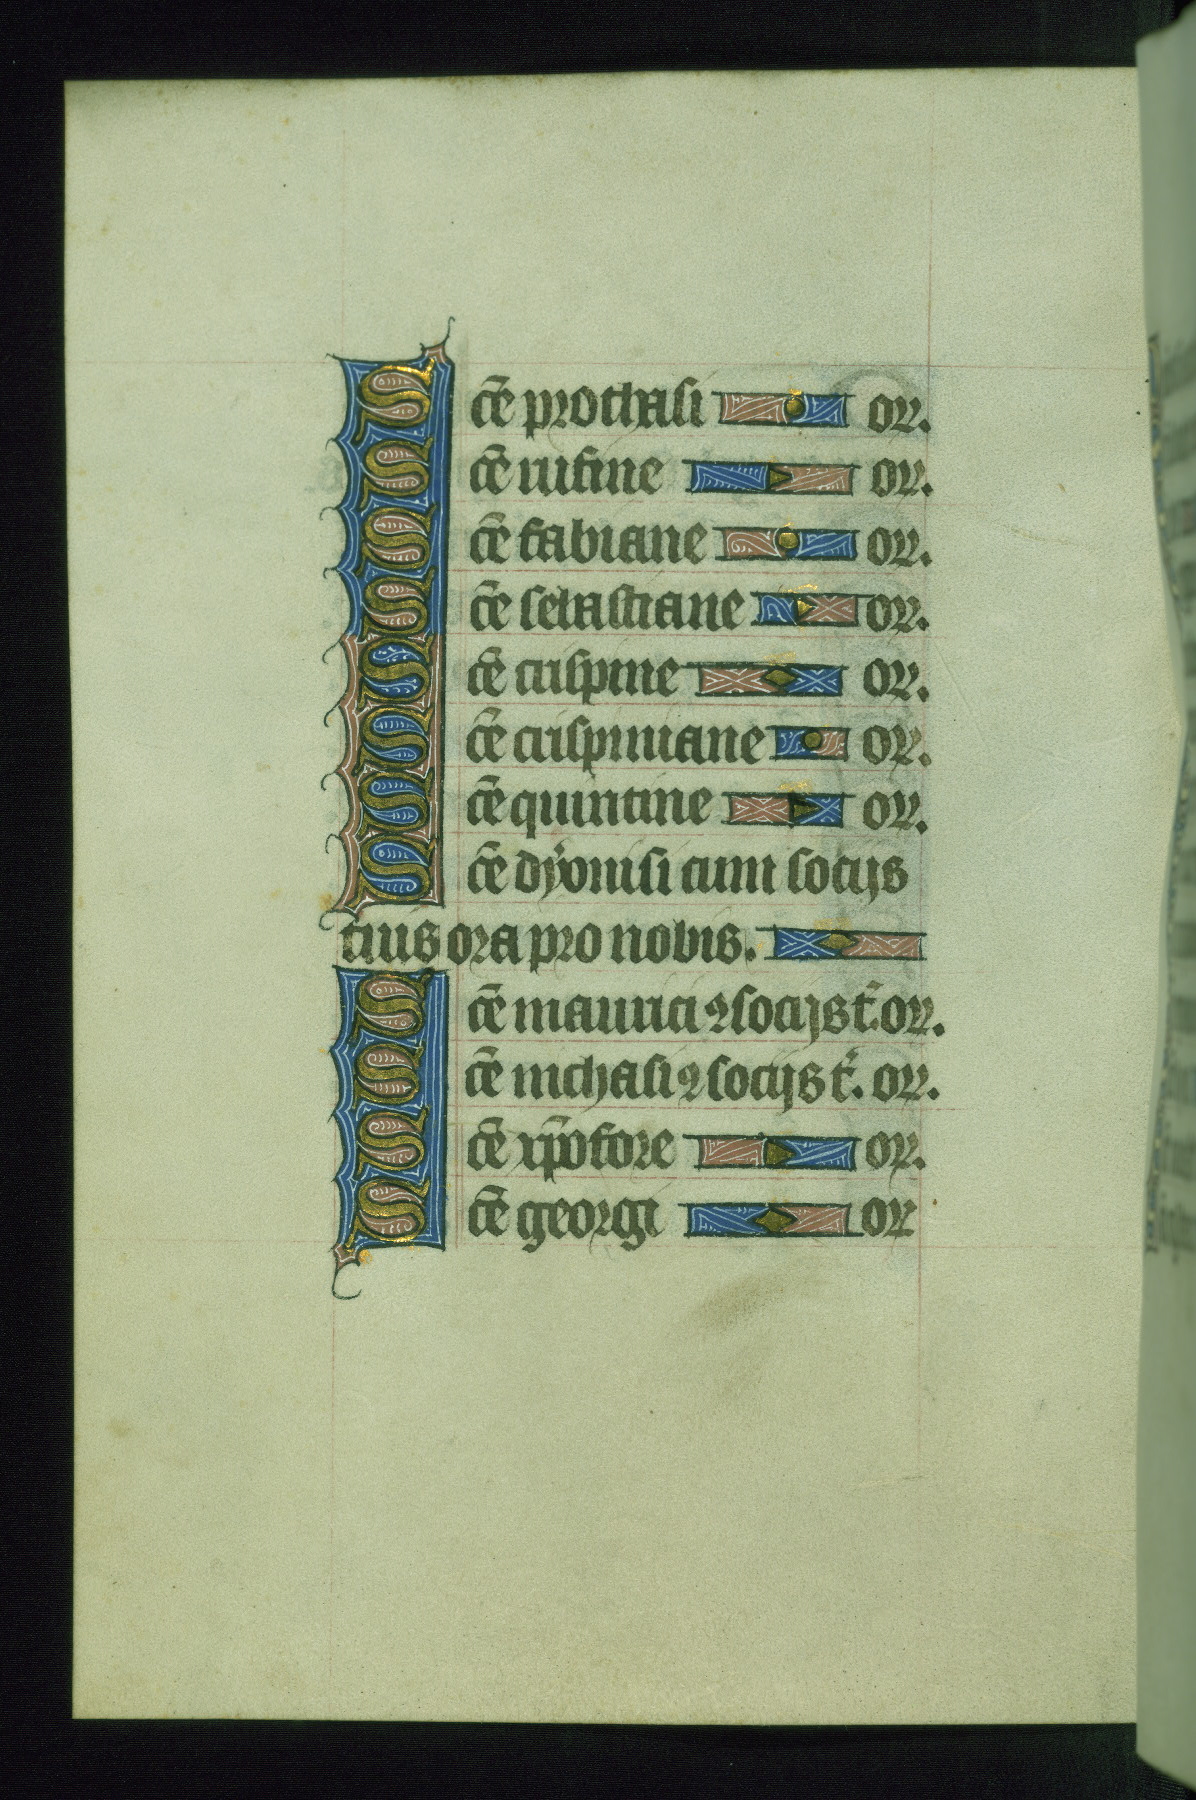 Sc̄e prothasi or.
Sc̄e rufine or.
Sc̄e fabiane or.
Sc̄e sebastiane or.
Sc̄e crispine or.
Sc̄e crispiniane or.
Sc̄e quintine or.
Sc̄e dẏonisi cum socijs
tuis ora pro nobis.
Sc̄e maurici ⁊ socijs t͛. or.
Sc̄e nichasi ⁊ socijs t͛. or.
Sc̄e xp̄ofore or.
Sc̄e georgi or